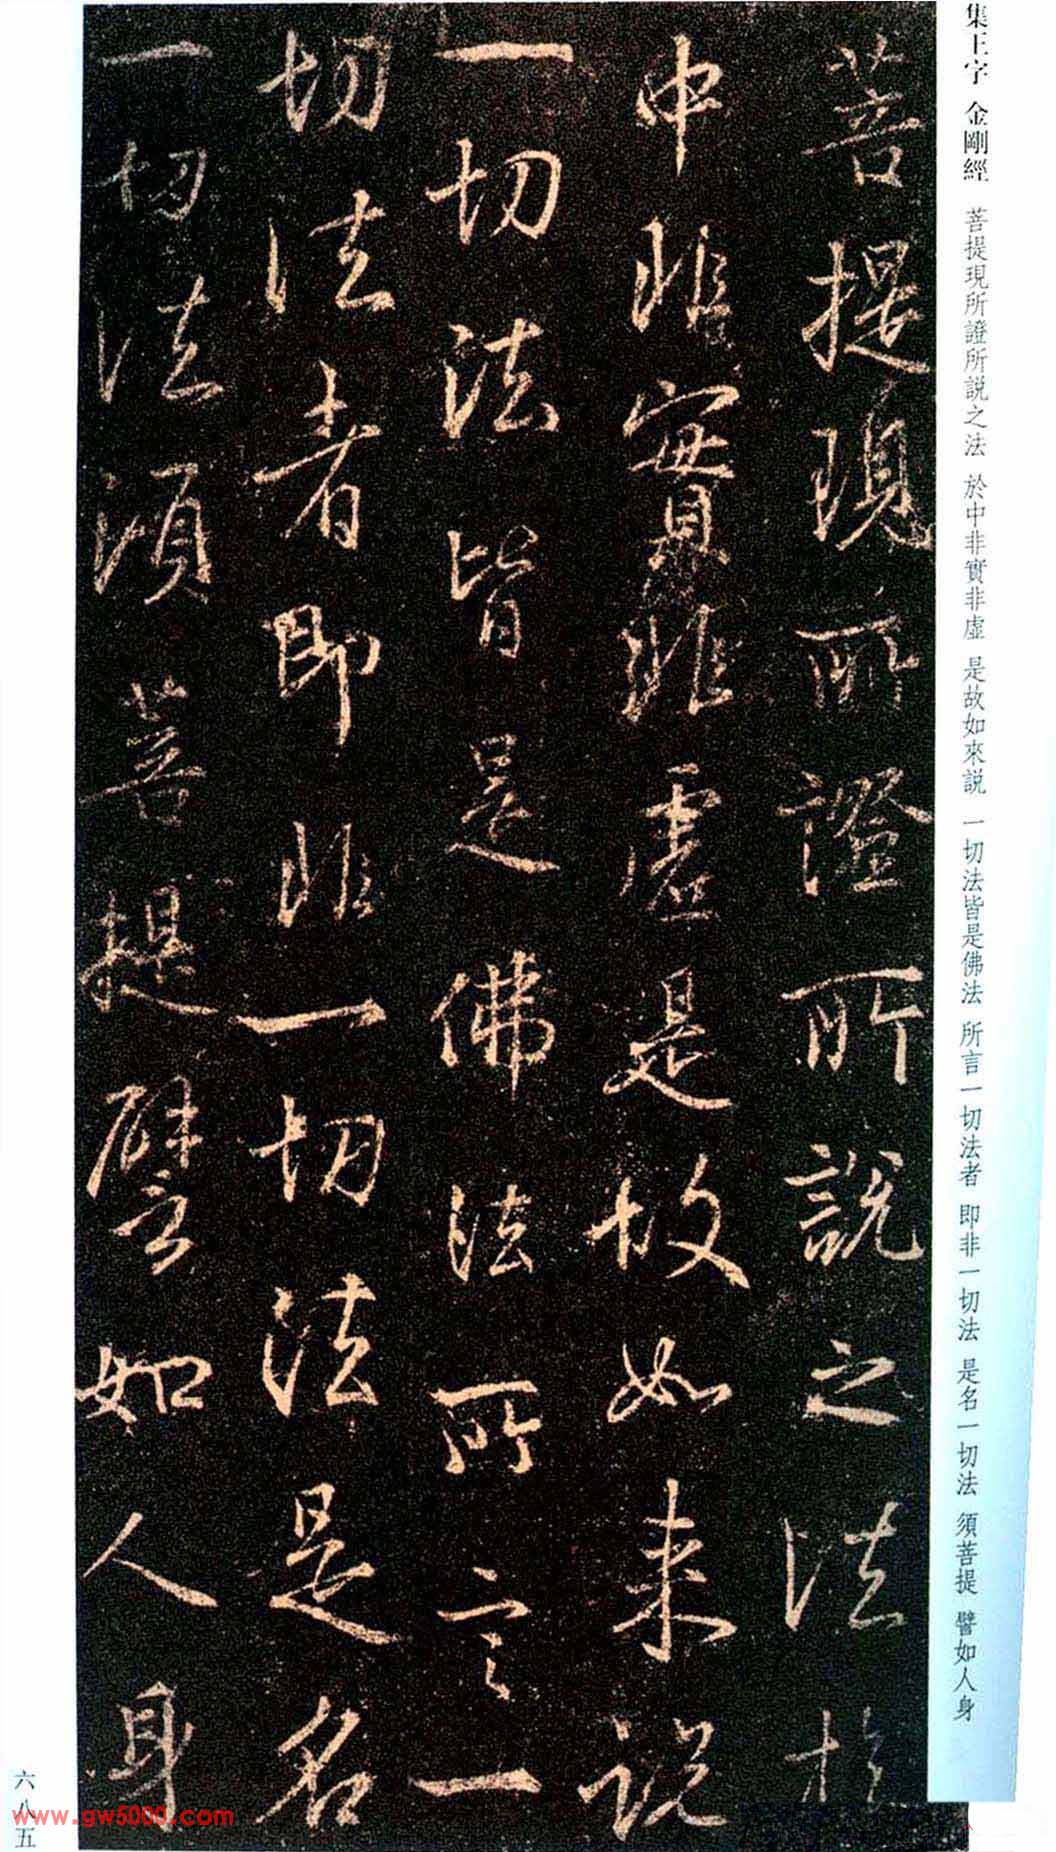 集王字 金剛經 菩提現所證所説之法 於中非實非虛 是故如來説 一切法皆是佛法 所言一切法者 即非一切法 是名一切法 須菩提 譬如人身
菩提現所證所説之法於
中非實非虛是故如来説
一切法皆是佛法所言一
切法者即非一切法是名
一切法須菩提譬如人身
六八五
www.gw5000.com